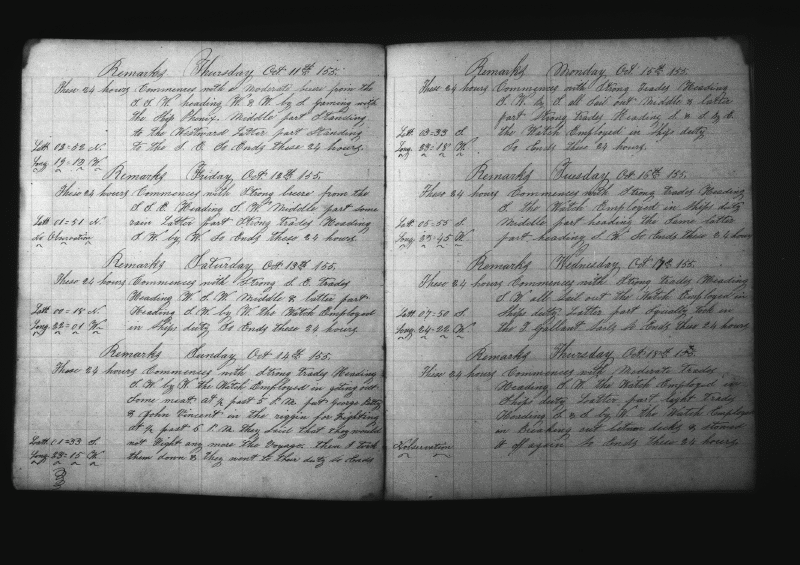 Remarks Thursday Oct 11th 155.
These 24 hours Commences with a Moderate breese from the
S. S. W. heading W. & W by S. gamming with
the Ship Phenix. Middle part Standing
to the Westward Latter part Standing
Latt 02=52 N. to the S. E. So Ends these 24 hours.
Long 19=19 W
Remarks Friday Oct 12th 155.
These 24 hours Commences with Strong breese from the
S. S. E. Heading S. W. Middle part some
Latt 01=51 N. rain Latter part Strong trades Heading
No Observation S. W by W. So Ends these 24 hours.
Remarks Saturday Oct 13th 155.
These 24 hours Commences with Strong S. E. trades
Heading W. S. W. Middle & latter part
Latt 00=18 N Heading S. W. by W. the Watch Employed
Long 22=01 W in Ships duty So Ends these 24 hours
Remarks Sunday Oct 14th 155.
These 24 hours Commences with Strong trades Heading
S. W. by W. the Watch Employed in geting out
Some meat at ½ past 5 P. M. put George
& John Vincent in the riggin for Fighting
at ½ past 5 P. M. they Said that they would
Latt 01=33 S. not Fight any more this Voyage then I took
Long 23=15 W them down & they went to their duty So Ends
Remarks Monday Oct 15th 155.
These 24 hours Commences with Strong trades Heading
S. W. by S. all Sail out Middle & latter
part Strong trades Heading S. &
Latt 03=33 S. the Watch Employed in Ships duty
Long 23=18 W. So Ends these 24 hours.
Remarks Tuesday Oct 16th 155.
These 24 hours Commences with Strong trades Heading
S. W. the Watch Employed in Ships duty
Latt 05=55 S. Middle part heading the Same latter
Long 23=45 W. part heading S. W. So Ends these 24 hours
Remarks Wednesday, Oct 17th 155.
These 24 hours Commences with Strong trades Heading
S. W. all Sail out the Watch Employed in
Latt 07=50 S. Ships duty Latter part Squally took in
Long 24=22 W. the T. Gallant Sails So Ends these 24 hours
Remarks Thursday, Oct 18th 155.
These 24 hours Commences with Moderate trades
Heading S. W. the Watch Employed in
Ships duty Latter part light trades
Heading S. & S. by W. the Watch Employed
in Breaking out between decks & stowed
Observation it off again So Ends these 24 hours